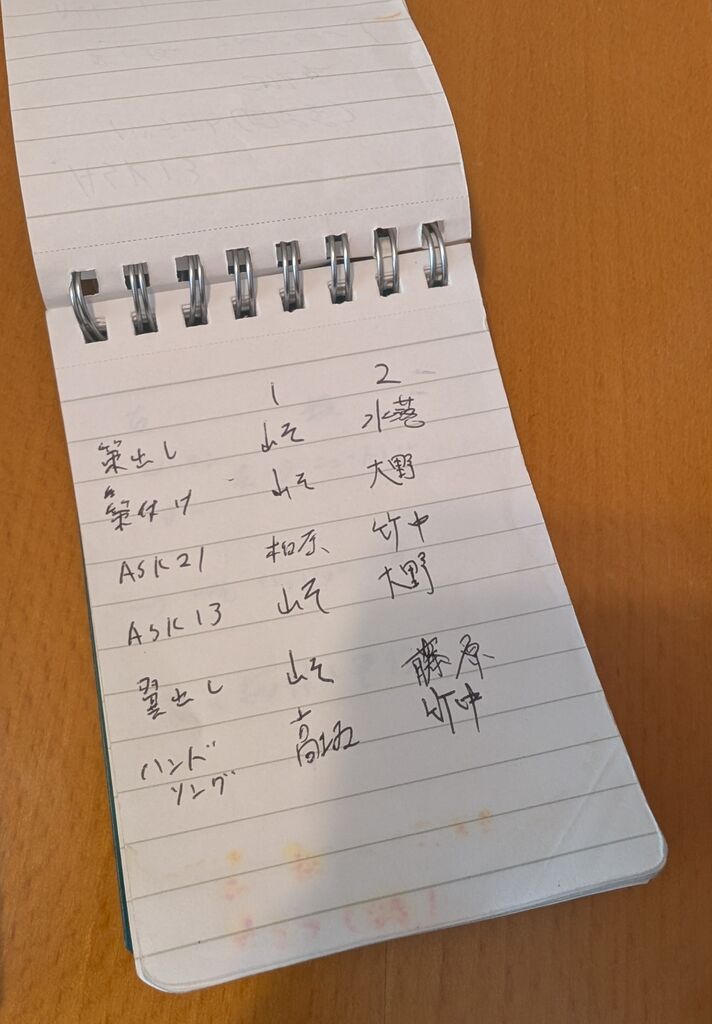 1 2
策出し 山そ 水落
策付け 山そ 大野
ASK21 柏原 竹中
ASK13 山そ 大野
翼出し 山そ 藤原
ハンド 高垣 竹中
ソング